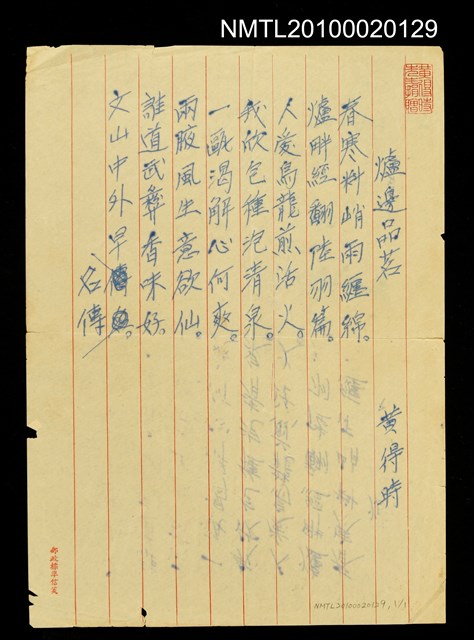 NMTL20100020129
爐邊品茗
黃得時
春寒料峭雨纏綿。
爐畔經翻陸羽篇。
人愛烏龍煎活火。
我欣包種泡清泉。
一甌渴解心何爽。
兩腋風生意欲仙。
誰道武彝香味好。
文山中外早傳
名傳
郵政標準信箋
NMTL20100020129, 1/1